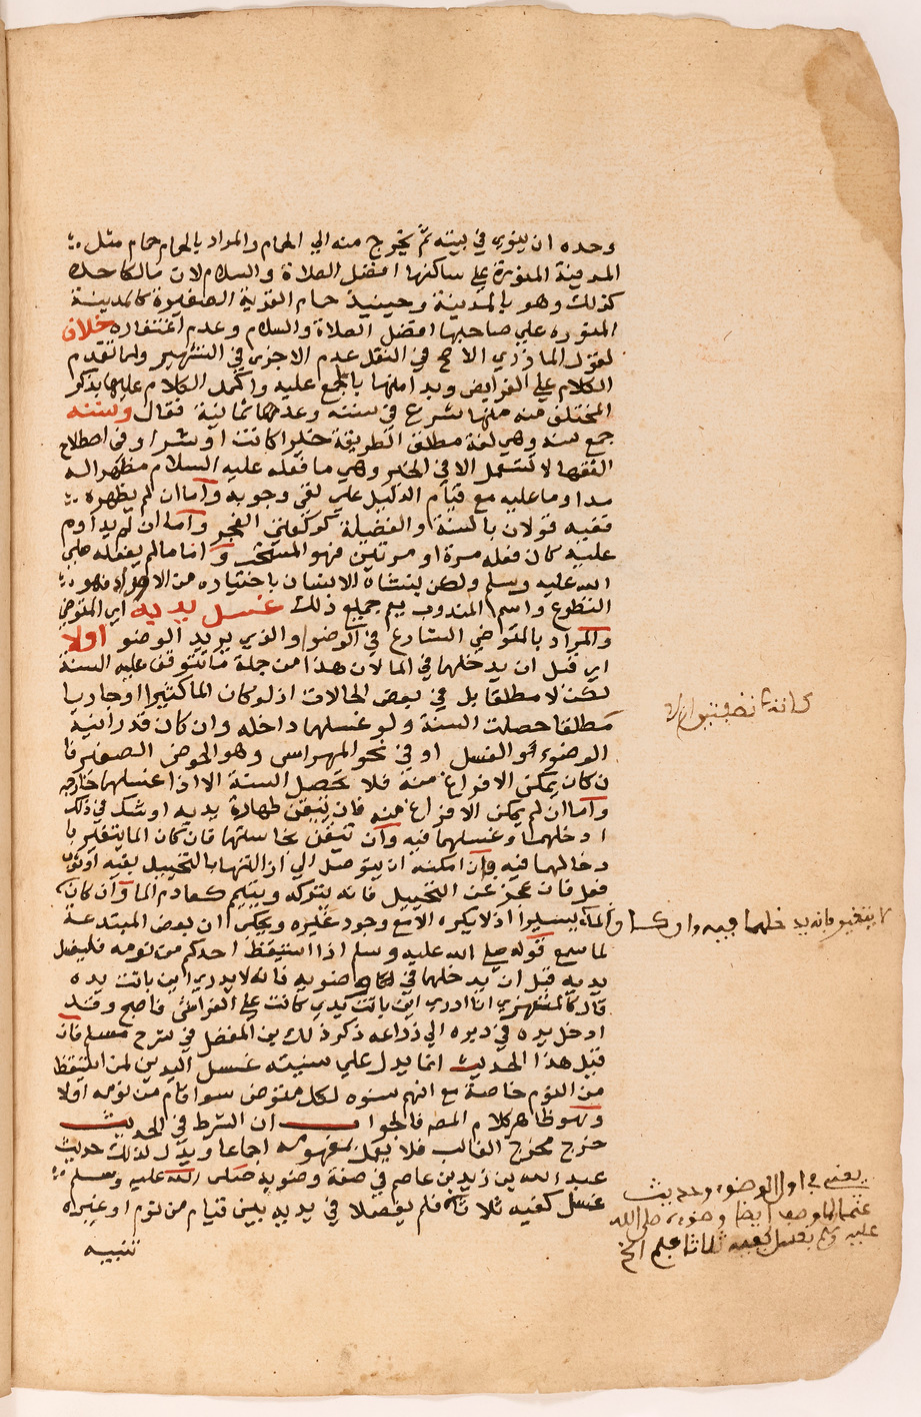 وحده ان ينوي في بيته ثم يخرج منه الي الحمام والمراد بالحمام حمام مثل
المدينة المنورة علي ساكنها افضل الصلاة والسلام لان مالكا حده
كذلك وهو بالمدينة وحينيذ حمام القرية الصغيرة كالمدينة
المنوره علي صاحبها افضل الصلاة والسلام وعدم اغتفاره خلاف
لقول المازري الاصح في النقل عدم الاجزى في التشهير ولما تقدم
الكلام علي الفرايض وبدا منها بالمجمع عليه واكمل الكلام عليها بذكر
المختلف فيه منها شرع في سننه وعدها ثمانية فقال وسننه
جمع سنه وهي لغة مطلق الطريقة خيرا كانت او شرا وفي اصطلاح
الفقها لا تستعمل الا في الخير وهي ما فعله عليه السلام مظهرا له
مداوما عليه مع قيام الدليل علي نفي وجوبه وأما ان لم يظهره
ففيه قولان بالسنة والفضيلة كركعتي الفجر وأما ان لم يداوم
عليه كان فعله مرة او مرتين فهو المستحب واما ما لم يفعله صلي
الله عليه وسلم ولكن ينشاه الانسان باختياره من الاوراد فهو
التطوع واسم المندوب يعم جميع ذلك غسل يديه اي المتوضي
والمراد بالمتوضي الشارع في الوضو والذي يريد الوضو اولا
اي قبل ان يدخلهما في الما لان هذا من جملة ما تتوقف عليه السنة
لكن لا مطلقا بل في بعض الحالات اذ لو كان الما كثيرا او جاريا
مطلقا حصلت السنة ولو غسلهما داخله وان كان قدر انية
الوضوء او الغسل او في نحو المهراس وهو الحوض الصغير فا
ن كان يمكن الافراغ منه فلا تحصل السنة الا اذا غسلهما خارجه
وأما ان لم يمكن الافراغ منه فان تيقن طهارة يديه او شك في ذلك
ادخلهما وغسلهما فيه وان تيقن نجاستها فان كان الما يتغير با
دخالهما فيه فإن امكنه ان يتوصل الي ازالتها بالتحييل بفيه او ثوب
فعل فان عجز عن التحييل فانه يتركه ويتيمم كعادم الما وان كان
الماء يسيرا اذ لا يكره الا مع وجود غيره ويحكى ان بعض المبتدعة
لما سمع قوله صلي الله عليه وسلم اذا استيقظ احدكم من نومه فليغسل
يديه قبل ان يدخلهما في وضويه فانه لا يدري اين باتت يده
قال كالمستهزي انا ادري اين باتت يدي كانت علي الفراش فاصبح وقد
ادخل يده في دبره الي ذراعه ذكر ذلك بن المفضل في شرح مسلم فان
قيل هذا الحديث انما يدل علي سنية غسل اليدين لمن استيقظ
من النوم خاصة مع انهم سنوه لكل متوض سوا قام من نومه اولا
وهو ظاهر كلام المص فالجواب ان الشرط في الحديث
خرج مخرج الغالب فلا يعمل بمفهومه اجماعا ويدل لذلك حديث
عبد الله بن زيد بن عاصم في صفة وضويه صلي الله عليه وسلم
غسل كفيه ثلاثا فلم يفصلا في يديه بين قيام من نوم او غيره
تنبيه
لا يتغير فانه يدخلهما فيه وان كان
يعني في اول الوضوء وحديث
عثمان ايضا وضوءه صلى الله
عليه وسلم يغسل كفيه ثلاثا فلم الخ